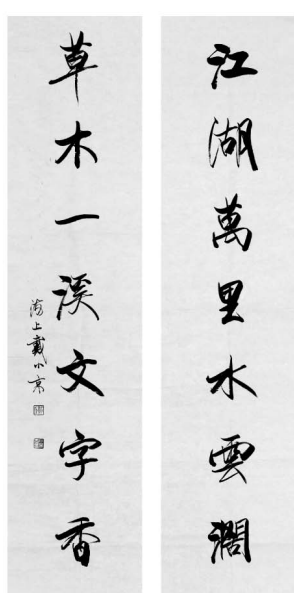 江湖萬里水雲濶
草木一溪文字香
海上戴小京